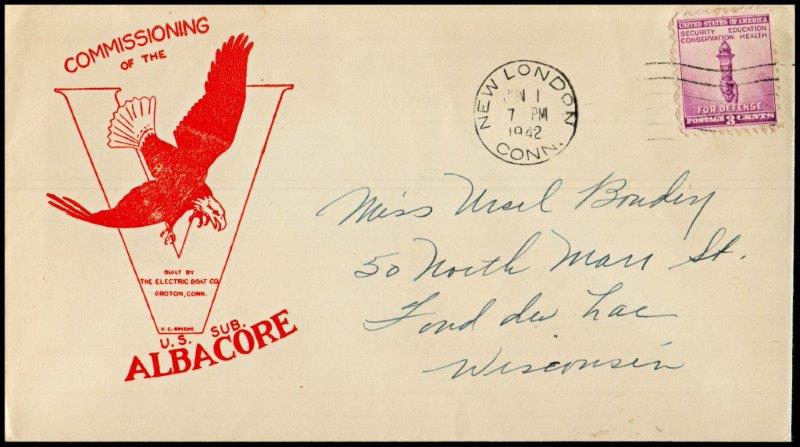 COMMISSIONING
OF THE
BUILT BY
THE ELECTRIC BOAT CO.
GROTON, CONN.
V. C. GREENE
U. S. SUB.
ALBACORE
NEW LONDON
JUN 1
7 PM
1942
CONN.
UNITED STATES OF AMERICA
SECURITY EDUCATION
CONSERVATION HEALTH
FOR DEFENSE
POSTAGE 3 CENTS
Miss Ursel
50 North Marr St.
Fond du Lac
Wisconsin